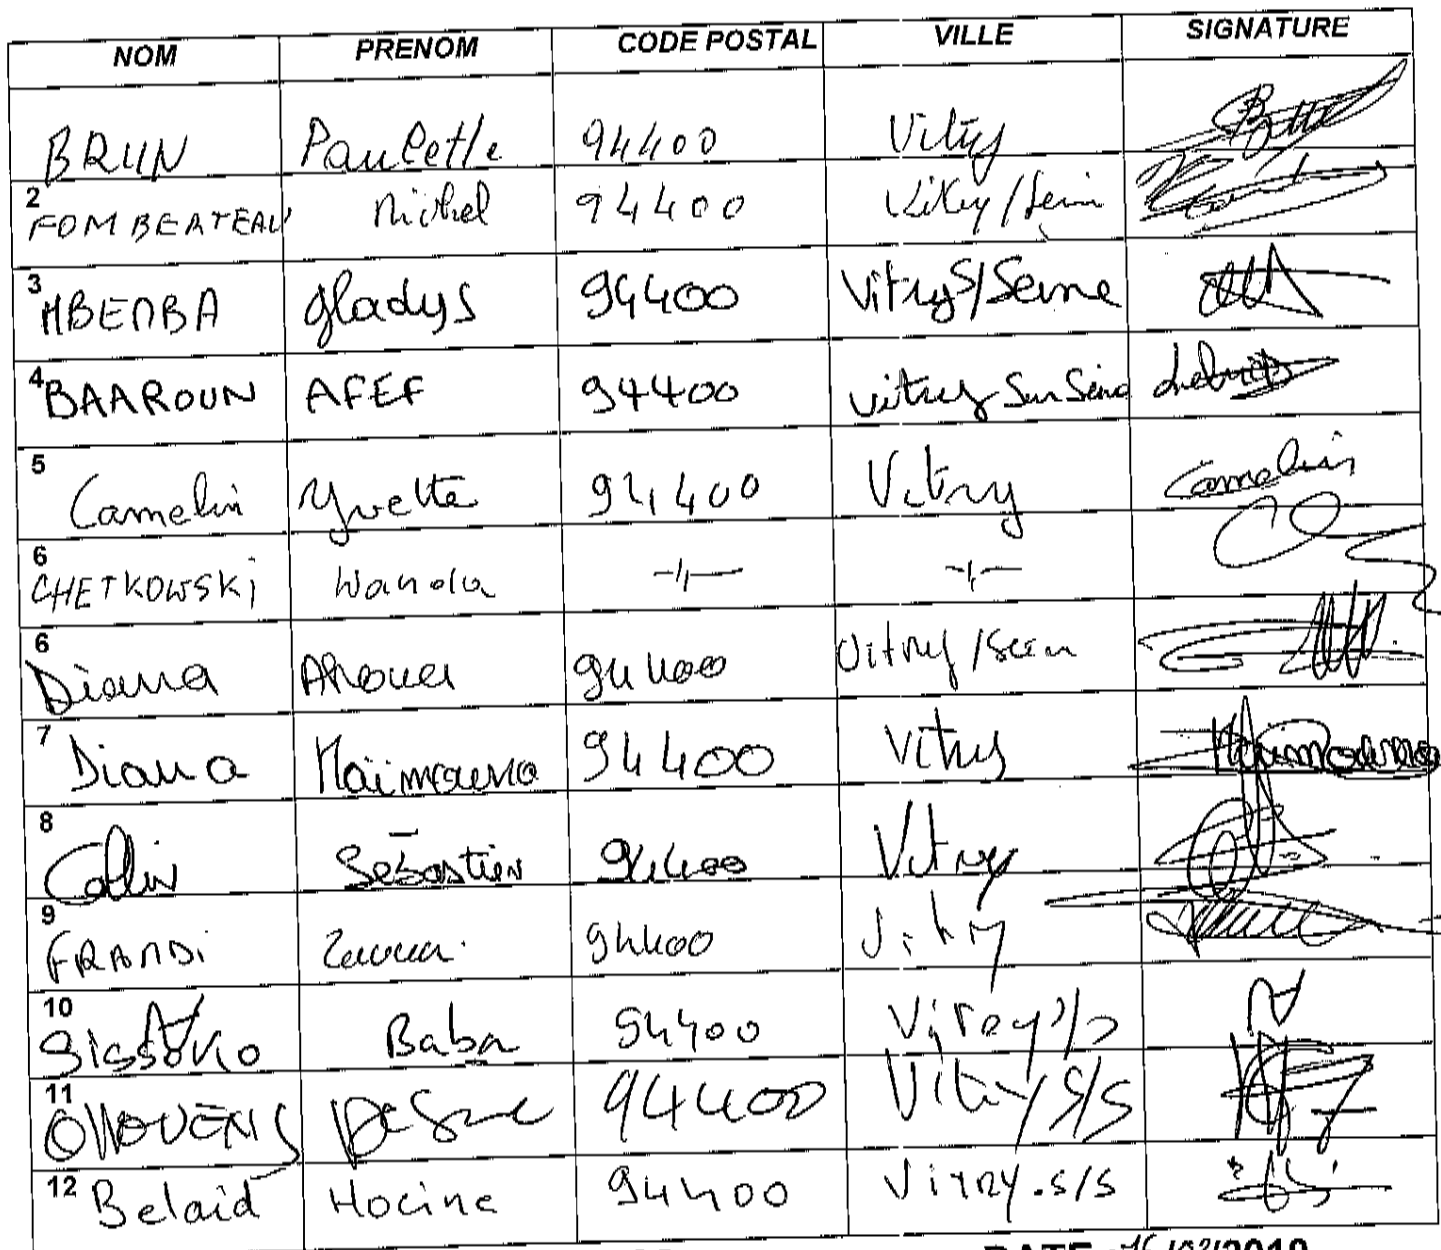 NOM PRENOM CODE POSTAL VILLE SIGNATURE
BRUN Paulette 94400 Vitry
2 FOMBERTEAU Michel 94400 Vitry/Seine
3 MBEMBA gladys 94400 Vitry S/Seine
4 BAAROUN AFEF 94400 vitry Sur Seine
5 Camelin Yvette 94400 Vitry Camelin
6 CHETKOWSKi Wanda -//- -//-
6 Diana 94400 Vitry/Seine
7 Diana Maïmouna 94400 Vitry Maïmouna
8 Collin Sébastien 94400 Vitry
9 FRANDi 94400 Vitry
10 Sissoko Baba 94400 Vitry s/s
11 94400 Vitry S/S
12 Belaid Hocine 94400 Vitry.s/s
DATE 2019